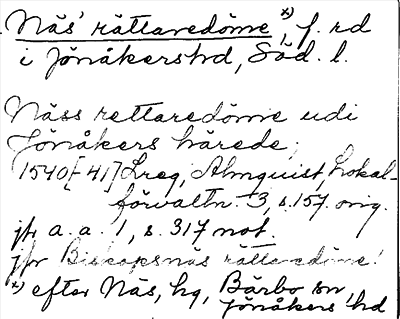 Näs' rättaredöme *), f. rd
i Jönåkershd, Söd. l.
Näss rettaredöme udi
Jönåkers härede,
1540[-41] Lreg, Almquist, Lokal-
förvaltn. 3, s. 157. orig.
jfr a. a. 1, s. 317 not.
jfr Biskopsnäs rättaredöme!
*) efter Näs, hg, Bärbo sn,
Jönåkers hd